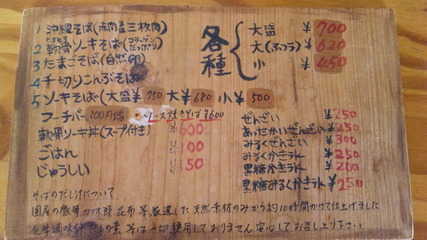 1 沖縄そば(赤肉三枚肉)
2 軟骨ソーキそば(コラーゲンたっぷり)
3 たまごそば(自然卵)
4 千切りこんぶそば
各種
大盛 ¥700
大(ふつう) ¥620
小 ¥450
5 ソーキそば(大盛¥750 大¥680 小¥500
フーチバー 100円増
ソース焼きそば ¥600
軟骨ソーキ丼(スープ付き) ¥600
ごはん ¥100
じゅうしい ¥150
ぜんざい ¥250
あったかいぜんざい ¥250
みるくぜんざい ¥300
みるくかき氷 ¥250
黒糖かき氷 ¥200
黒糖みるくかき氷 ¥250
そばのだし汁について
国産の豚骨 かつお節 昆布 等厳選した天然素材のみから約10時間かけて仕上げました
化学調味料 の素 等は一切使用しておりません 安心してお召し上り下さい